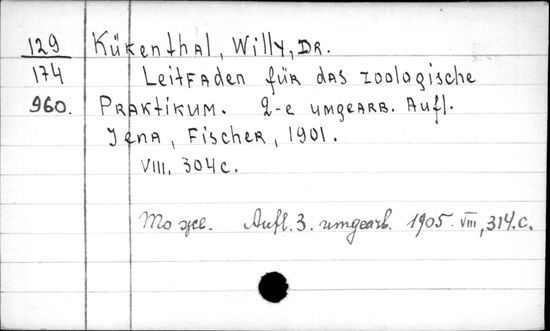 129 Kükenthal, Willy, Dr.
174 Leitfaden für das zoologische
960. Praktikum. 2-e umgearb. Aufl.
Jena, Fischer, 1901.
VIII, 304 с.
То же. Aufl. 3. umgearb. 1905. VIII, 314. с.